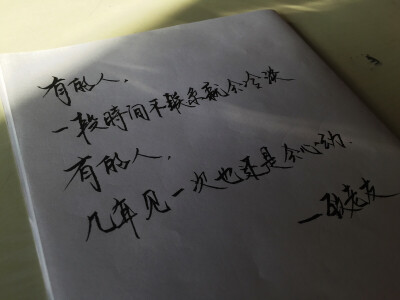 有的人,
一段時间不联系就会冷淡
有的人,
几年见一次也还是会心动.
一